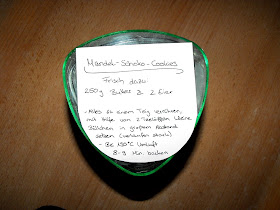 Mandel-Schoko-Cookies
Frisch dazu:
250g Butter & 2 Eier
- Alles zu einem Teig verrühren,
mit Hilfe von 2 Teelöffeln kleine
Bällchen in großem Abstand
setzen (verlaufen stark)
- Bei 190°C Umluft
8-9 Min. backen